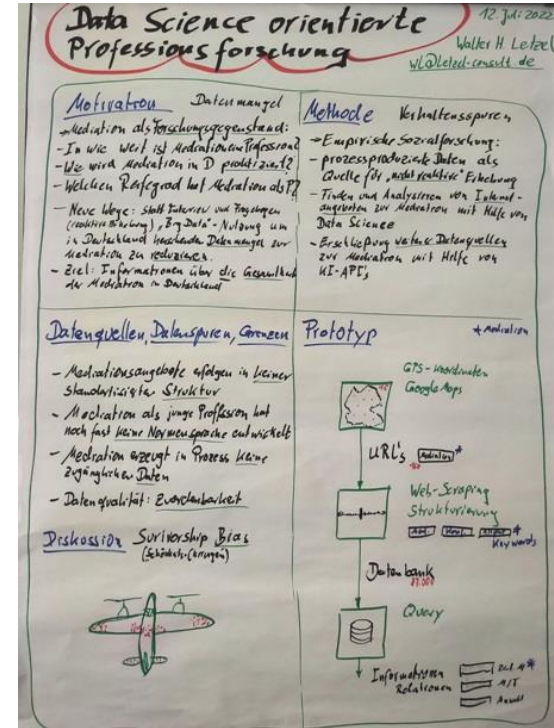 Data Science orientierte
Professionsforschung
12. Juli 2022
Walter H. Letzel
wl@letzel-consult.de
Motivation Datenmangel
→ Mediation als Forschungsgegenstand:
- In wie weit ist Mediation eine Profession?
- Wie wird Mediation in D praktiziert?
- Welchen Reifegrad hat Mediation als P?
- Neue Wege: statt Interview und Fragebogen
(reaktive Erhebung), "Big Data"-Nutzung um
in Deutschland herrschende Datenmangel zur
Mediation zu reduzieren.
- Ziel: Informationen über die Gesamtheit
der Mediation in Deutschland
Methode Verhaltensspuren
→ Empirische Sozialforschung:
- prozessproduzierte Daten als
Quelle für "nicht reaktive" Erhebung
- Finden und Analysieren von Internet-
angeboten zur Mediation mit Hilfe von
Data Science
- Erschließung weiterer Datenquellen
zur Mediation mit Hilfe von
KI-API's
Datenquellen, Datenspuren, Grenzen
- Mediationsangebote erfolgen in keiner
standardisierter Struktur
- Mediation als junge Proffesion hat
noch fast keine Normensprache entwickelt
- Mediation erzeugt in Prozess keine
zugänglichen Daten
- Datenqualität: Zuordenbarkeit
Diskussion Surivorship Bias
Prototyp * Mediation
GPS-Koordinaten
Google Maps
URL's Mediation *
Web-Scraping
Strukturierung
Keywords
Datenbank
Query
Informationen
Relationen